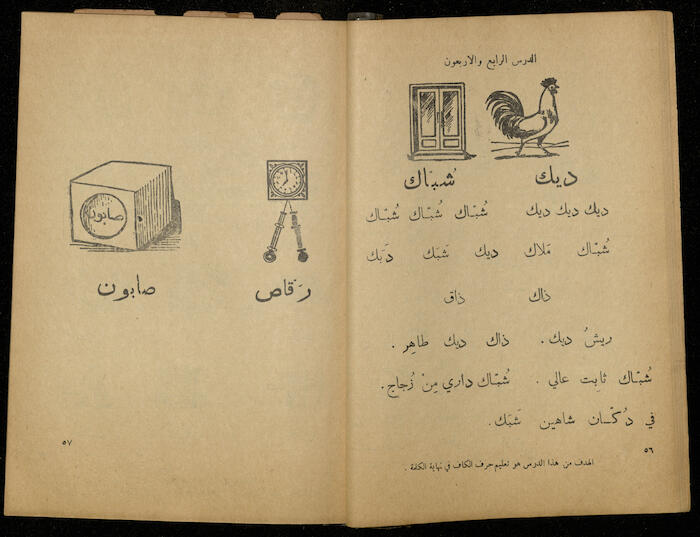 الدرس الرابع والاربعون
ديك شُبّاك
ديك ديك ديك شُبّاك شُبّاك شُبّاك
شُبّاك مَلاك ديك شَبَك دَبَك
ذاك ذاق
ريشُ ديك . ذاك ديك طاهِر .
شُبّاك ثابِت عالي . شُبّاك داري مِنْ زُجاج .
في دُكّان شاهين شَبَك .
٥٦
الهدف من هذا الدرس هو تعليم حرف الكاف في نهاية الكلمة .
صابون
رَقاص صابون
٥٧